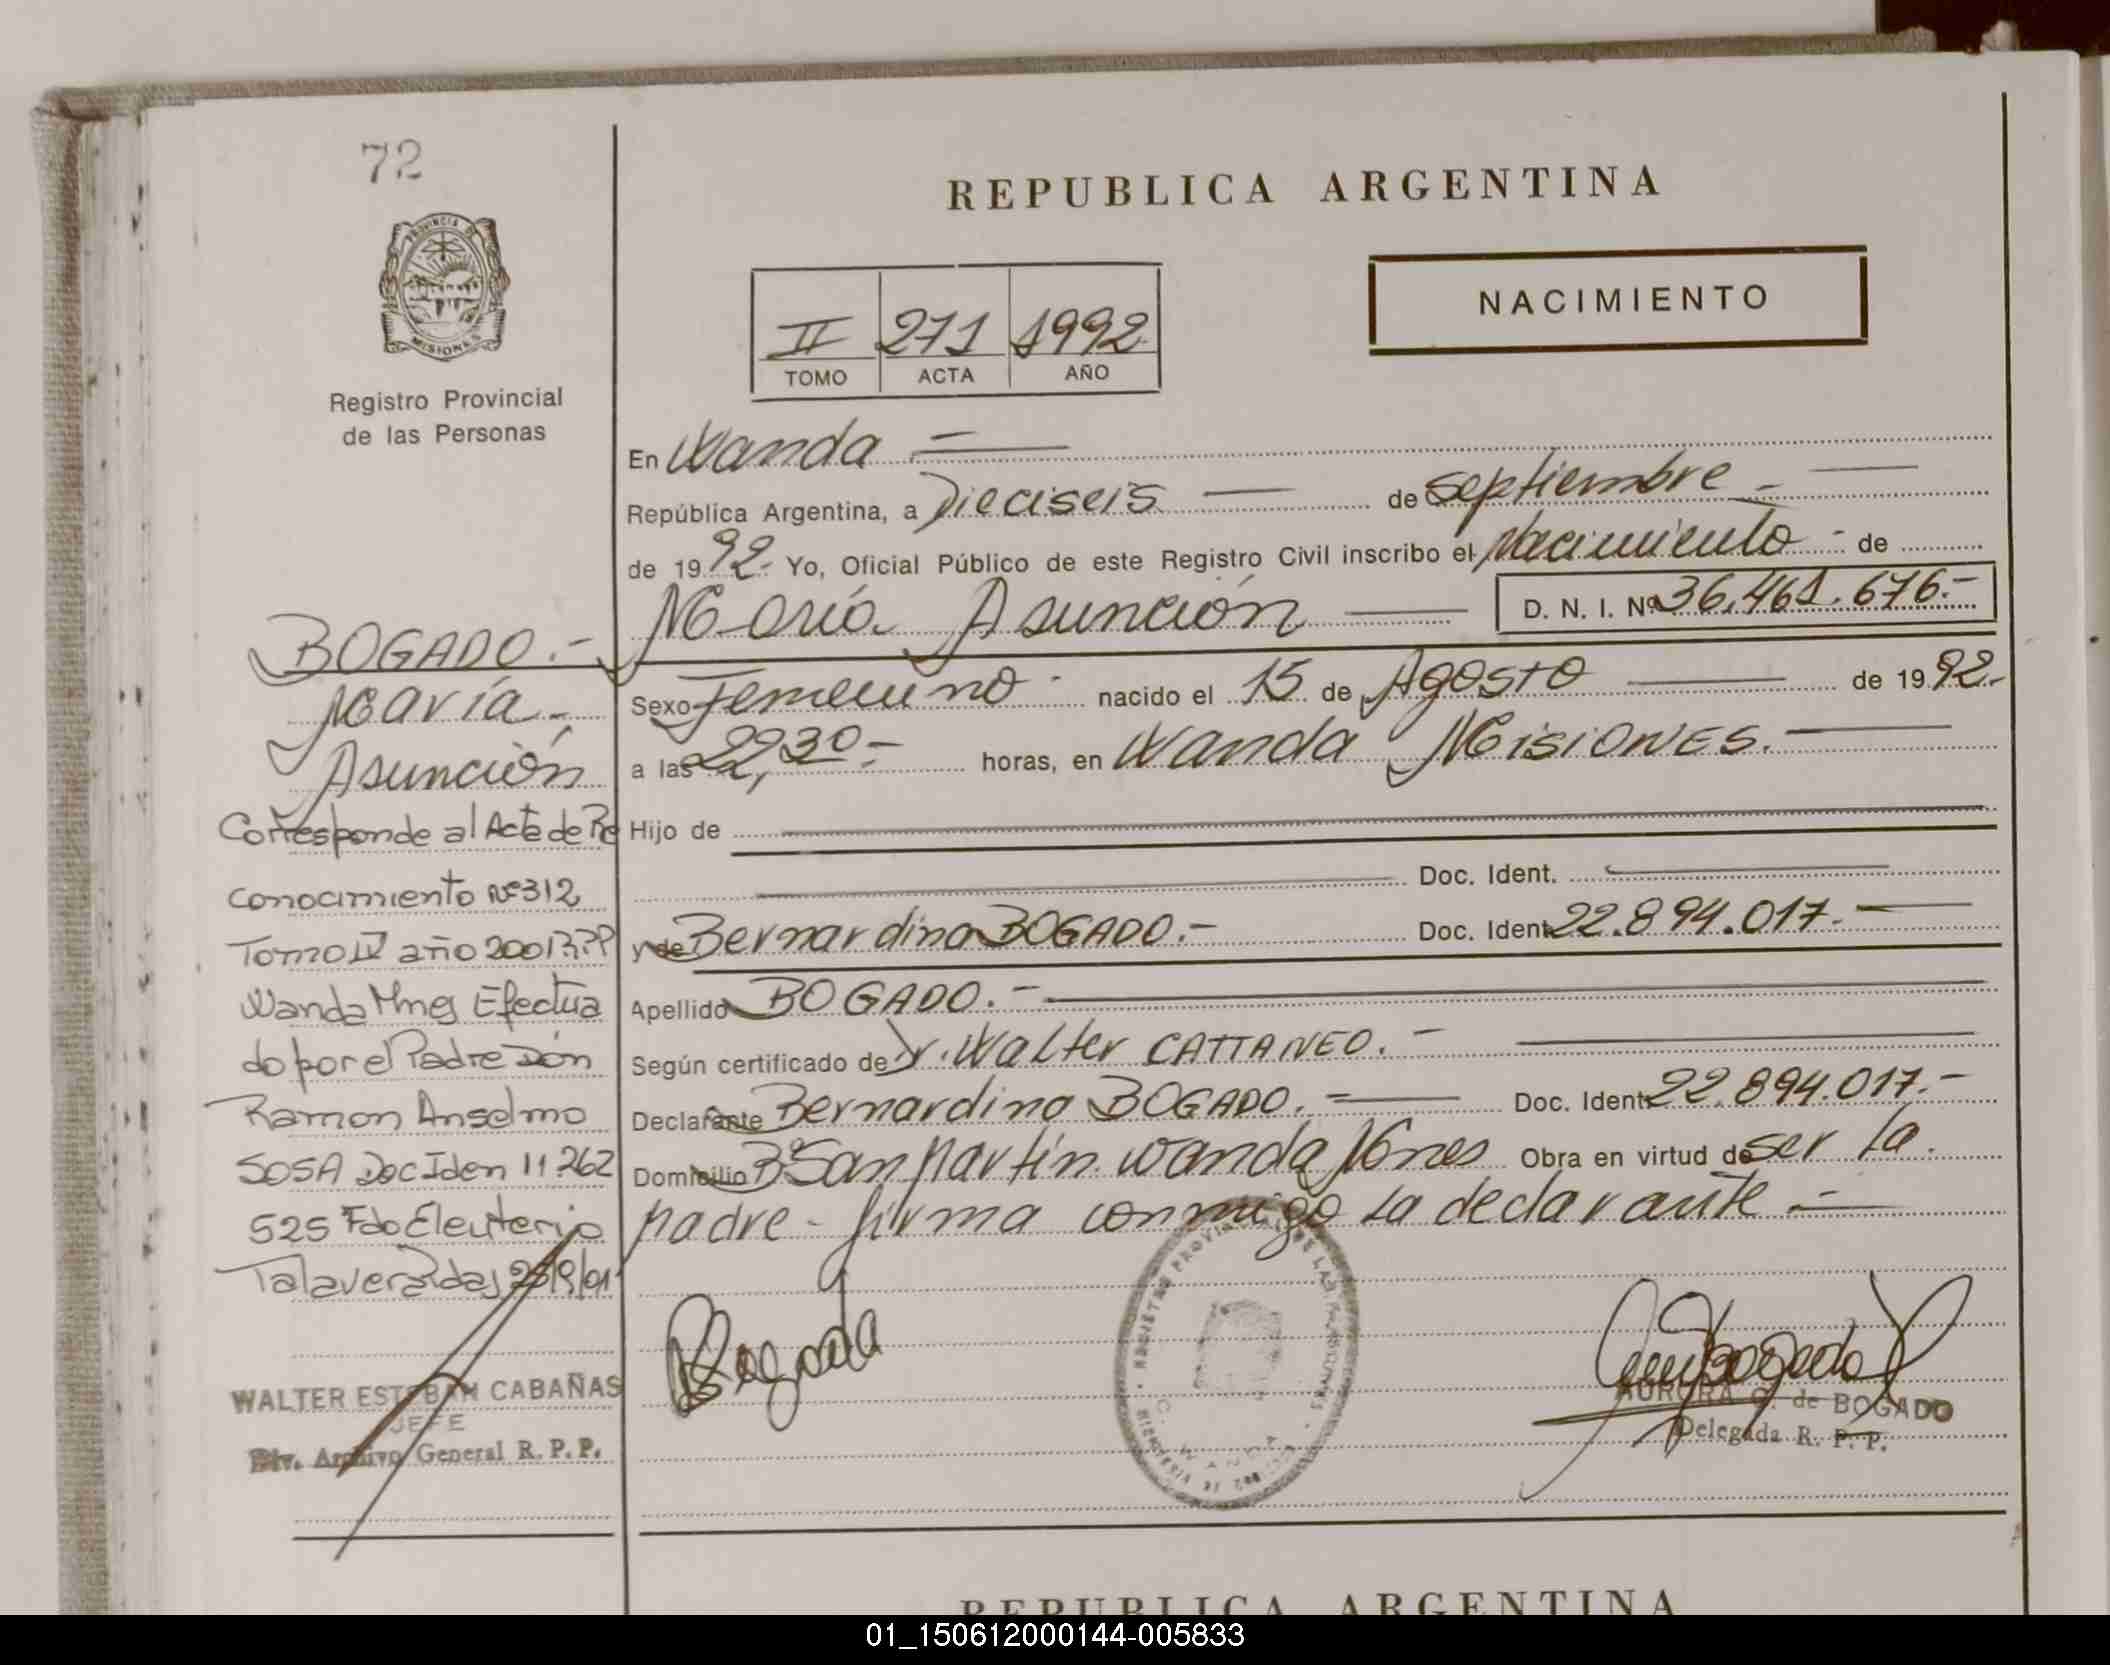 72
PROVINCIA DE
MISIONES
Registro Provincial
de las Personas
BOGADO.-
María -
Asunción
Corresponde al Acta de Re
conocimiento Nº 312
Tomo IV año 2001 R.P.P
Wanda Mnes Efectua
do por el Padre Don
Ramon Anselmo
SOSA Doc Iden 11262
525 Fdo Eleuterio
Talavera Pdas 25/9/01
WALTER ESTEBAN CABAÑAS
JEFE
Div. Archivo General R. P. P.
REPUBLICA ARGENTINA
NACIMIENTO
II 271 1992
TOMO ACTA AÑO
En Wanda
República Argentina, a Dieciseis de septiembre -
de 1992- Yo, Oficial Público de este Registro Civil inscribo el Nacimiento - de
María Asunción D. N. I. Nº 36.461.676.-
Sexo Femenino - nacido el 15 de Agosto de 1992.-
a las 22,30- horas, en Wanda Misiones.
Hijo de
Doc. Ident.
y de Bernardina BOGADO.- Doc. Ident. 22.894.017.-
Apellido BOGADO.-
Según certificado de Dr. Walter CATTANEO.-
Declarante Bernardina BOGADO.- Doc. Ident. 22.894.017.-
Domicilio Bº San Martín. Wanda Mnes Obra en virtud de ser la
madre - firma conmigo la declarante -
Bogado
REGISTRO PROVINCIAL DE LAS PERSONAS
WANDA
AURORA G. de BOGADO
Delegada R. P. P.
REPUBLICA ARGENTINA
01_150612000144-005833